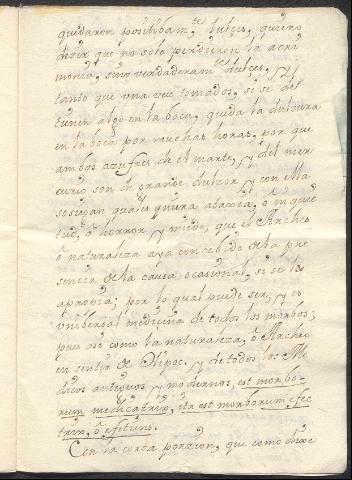 quedaron positibam.te dulces, quiero
dezir que no solo perdieron la acri
monia, sino verdaderam.te dulces, y
tanto que una vez tomados, si se de
tienen algo en la boca, queda la dulzura
en la boca por muchas horas, por que
ambos azufres de el marte, y del mer
curio son de grande dulzor y con ella
sosiegan qualesquiera ataxia, o inquie
tud, o horror, y miedo, que el Archeo
o naturaleza aya concebido de la pre
sencia de la causa ocasional, si se la
apropia; por lo qual puede ser, y es
vniversal medicina de todos los morbos;
pues asi como la naturaleza, o Archeo
en sentir de Hipoc. y de todos los Me
dicos antiguos y modernos, est morbo-
rum medicatrix, ita est morborum efec
trix, o
Con la corta porzion, que como dixe